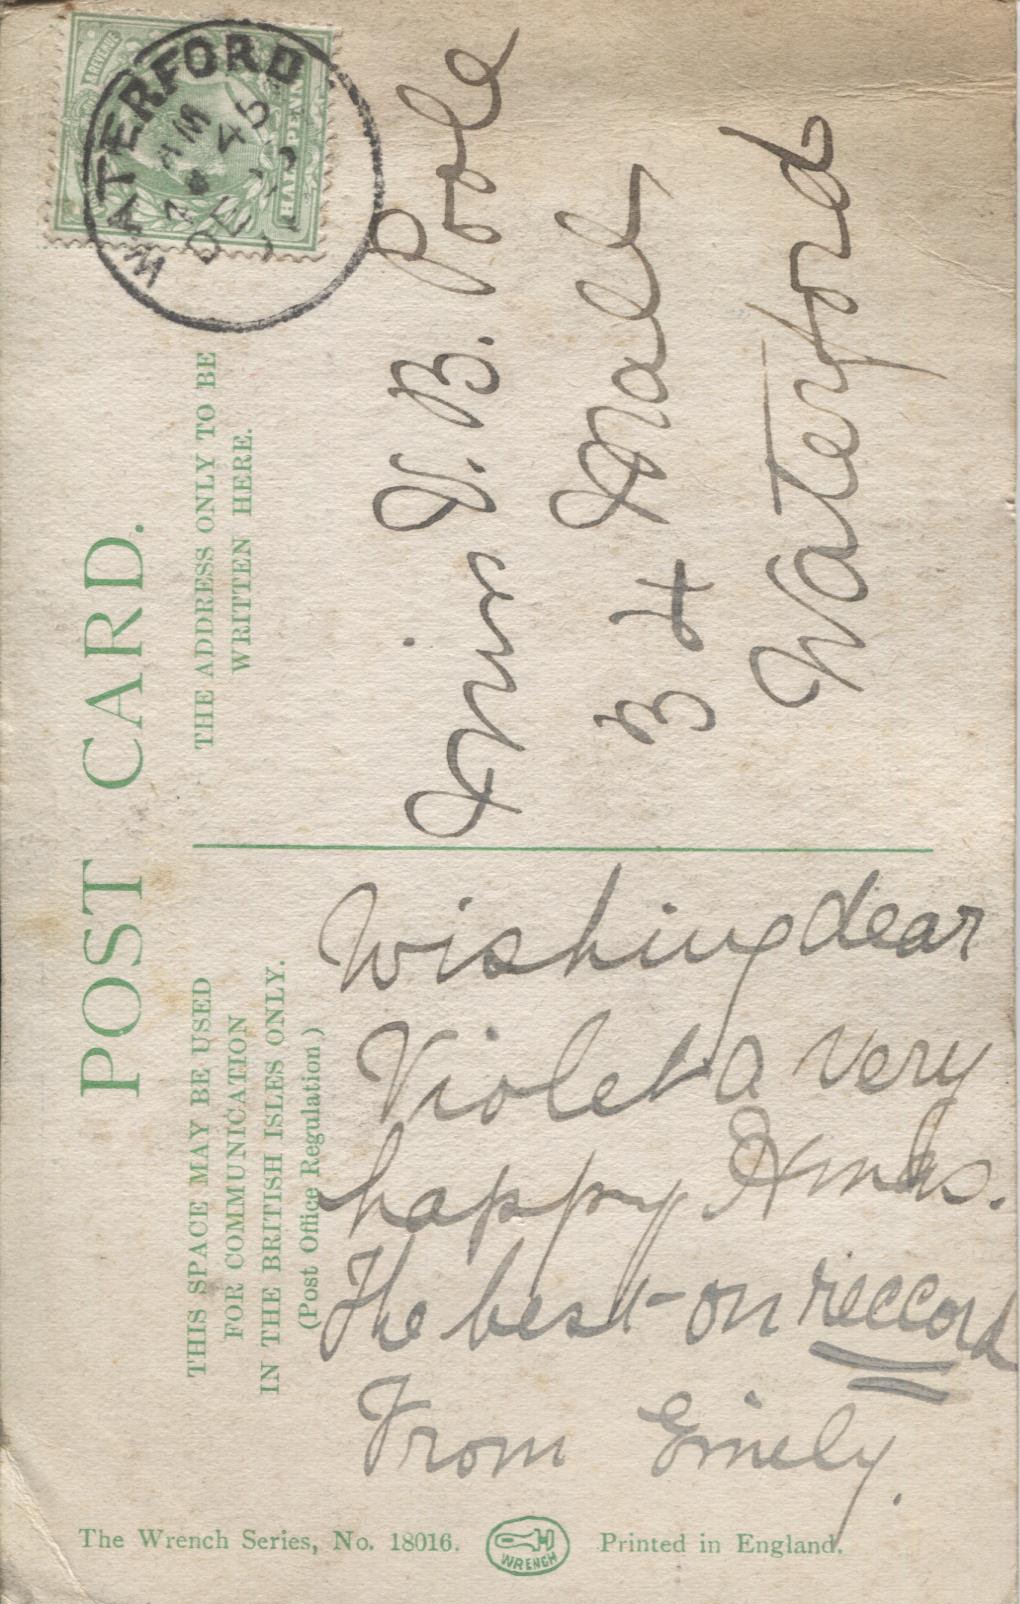 POST CARD.
THIS SPACE MAY BE USED
FOR COMMUNICATION
IN THE BRITISH ISLES ONLY.
(Post Office Regulation)
THE ADDRESS ONLY TO BE
WRITTEN HERE.
& REVENUE
HALFPENNY
WATERFORD
AM
45
DE
Miss V. B. Poole
34 Mall
Waterford
Wishing dear
Violet a very
happy Xmas.
The best on reccord
From Emily.
The Wrench Series, No. 18016.
WRENCH
Printed in England.